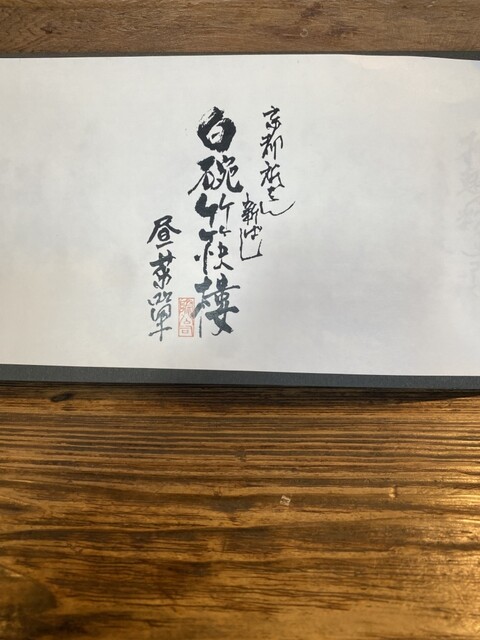 京都祇をん
新ばし
白碗竹筷樓
昼菜單